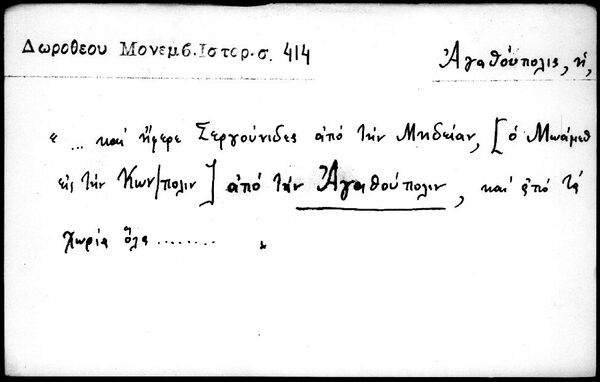 Δωροθεου Μονεμβ. Ιστορ. σ. 414
Ἀγαθούπολις, ἡ,
« ... καὶ ἤφερε Σεργούνιδες ἀπό τήν Μηδείαν, [ὁ Μωάμεθ
εἰς τήν Κων/πολιν] ἀπό τήν Ἀγαθούπολιν, καί ἀπό τά
χωρία ὅλα ........ »